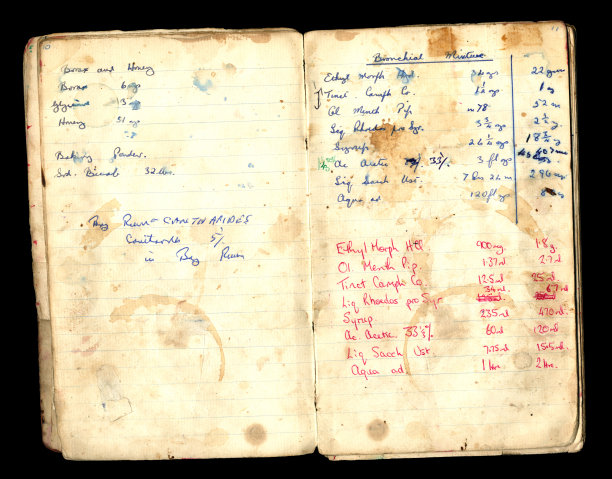 10
Borax and Honey
Borax 6 ozs
Glycerine 13 ozs
Honey 51 ozs
Baking Powder.
Sod. Bicarb 32 lbs.
Bay Rum + CANTHARIDES
Cantharids 5%
in Bay Rum
11
Bronchial Mixture
Ethyl Morph Hcl. 22 grs
Tinct. Camph Co. 1 oz
Ol Menth Pip. m 78 52 m
Liq Rhoeados pro Syr. 3 3/4 ozs 2 1/2 oz
Syrup 26 1/4 ozs 18 3/4 oz
Ac Acetic 33% 3 fl ozs
Liq Sacch Ust. 296 m
Aqua ad 120 fl ozs
Ethyl Morph Hcl. 900 mg 1.8 g.
Ol. Menth Pip. 1.37 ml 2.7 ml
Tinct Camph Co. 12.5 ml 25 ml
Liq Rhoedos pro Syr. 34 ml 67 ml
Syrup 235 ml 470 ml
Ac Acetic 33 1/3% 60 ml 120 ml
Liq Sacch Ust. 7.75 ml 15.5 ml
Aqua ad 1 litre. 2 litre.